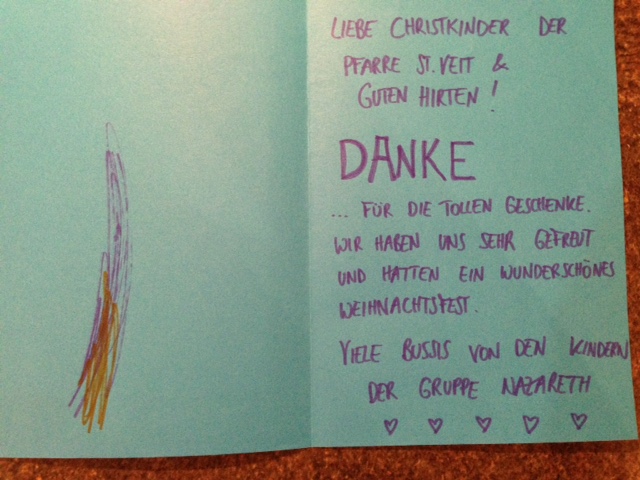 LIEBE CHRISTKINDER DER
PFARRE ST. VEIT &
GUTEN HIRTEN!
DANKE
... FÜR DIE TOLLEN GESCHENKE.
WIR HABEN UNS SEHR GEFREUT
UND HATTEN EIN WUNDERSCHÖNES
WEIHNACHTSFEST.
VIELE BUSSIS VON DEN KINDERN
DER GRUPPE NAZARETH
♡ ♡ ♡ ♡ ♡